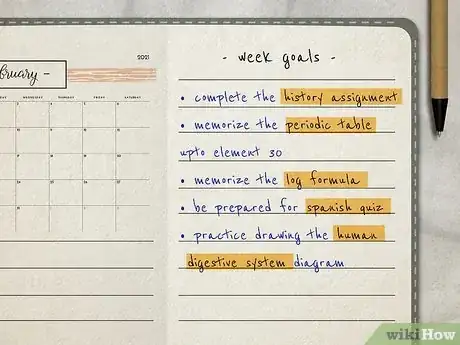 2021
bruary -
- week goals -
• complete the history assignment
• memorize the periodic table
upto element 30
• memorize the log formula
• be prepared for spanish quiz
• practice drawing the human
digestive system diagram
wikiHow